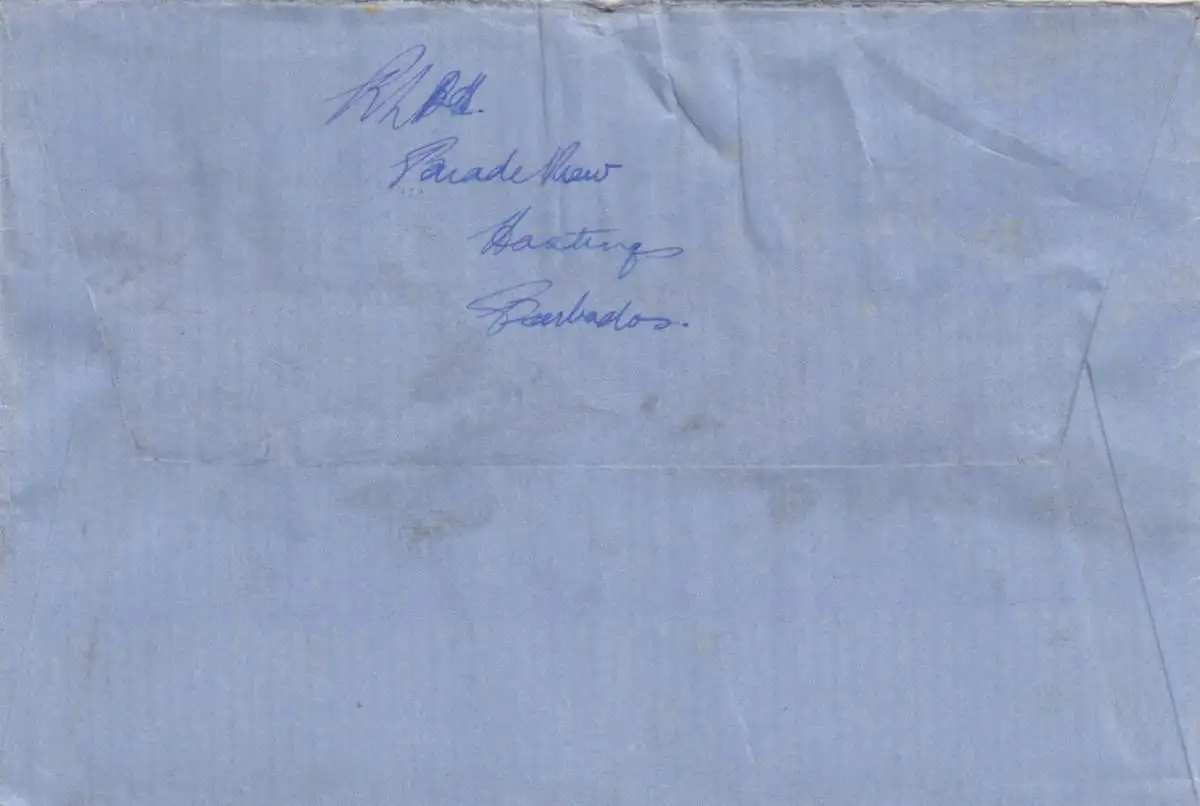 Parade View
Hastings
Barbados.